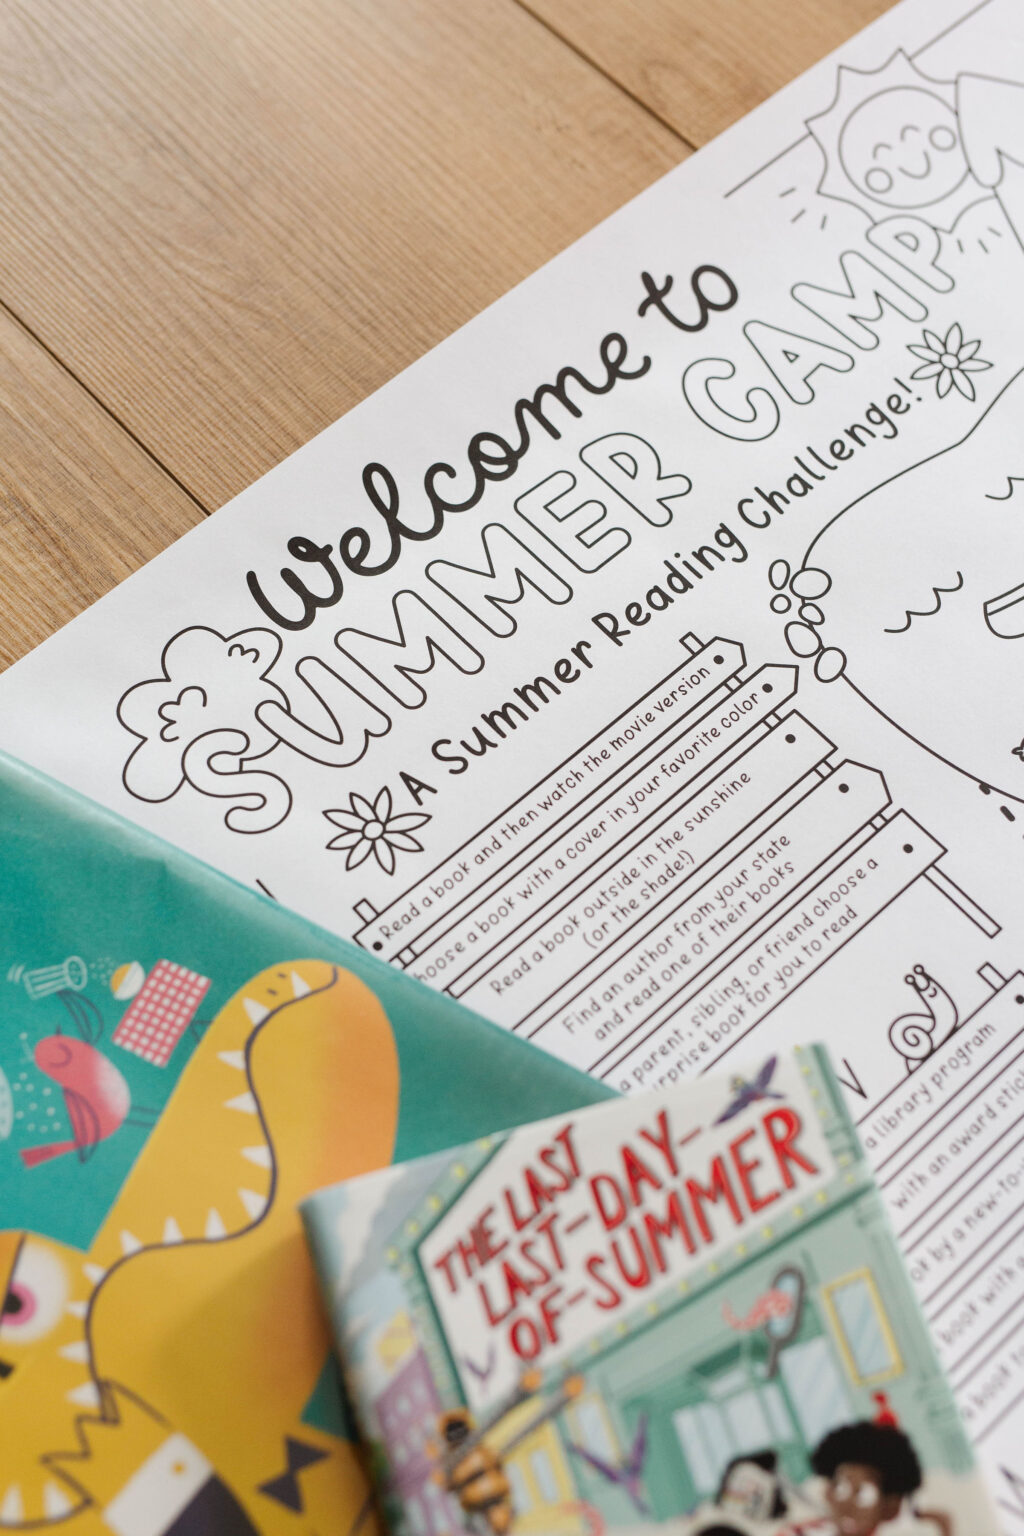 Welcome to
SUMMER CAMP
A Summer Reading Challenge!
Read a book and then watch the movie version
hoose a book with a cover in your favorite color
Read a book outside in the sunshine
(or the shade!)
Find an author from your state
and read one of their books
a parent, sibling, or friend choose a
rprise book for you to read
a library program
with an award stic
ok by a new-to-
book with a
a book to
THE LAST
LAST-DAY-
OF-SUMMER